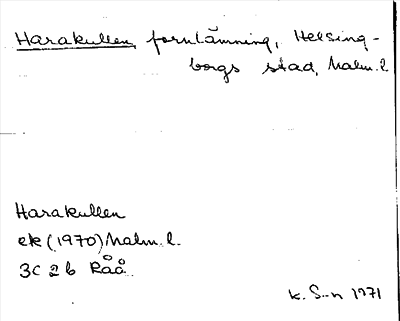 Harakullen, fornlämning, Helsing-
borgs stad, Malm. l.
Harakullen
ek (1970) Malm. l.
3C 2b Råå
K. S-n 1971